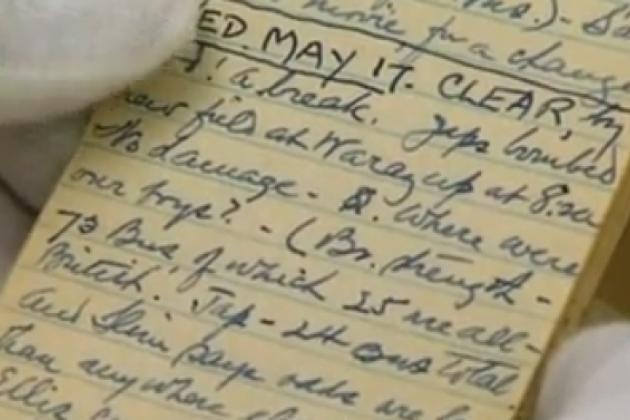 movie, for a change
ED. MAY 17. CLEAR, by
! a break. Japs bombed
new field at Warazup at 8:20
No damage - Q. Where were
our boys? - (Br. strength -
73 Bns, of which 25 are all-
British. Jap - 24 Bns total
and Slim says odds are
than anywhere
Ellis